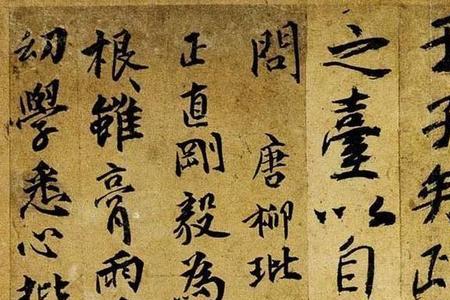 子矣正
之臺以自
問 唐柳玭
正直剛毅為
根雖膏雨
幼學悉心